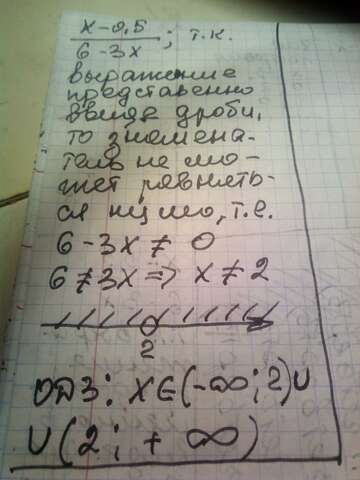 x-0,5
6-3x ; т.к.
выражение
представленно
ввиде дроби,
то знамена-
тель не мо-
жет ровнять-
ся нулю, т.е.
6-3x ≠ 0
6 ≠ 3x => x ≠ 2
2
ОДЗ: x∈(-∞; 2)∪
∪(2; +∞)